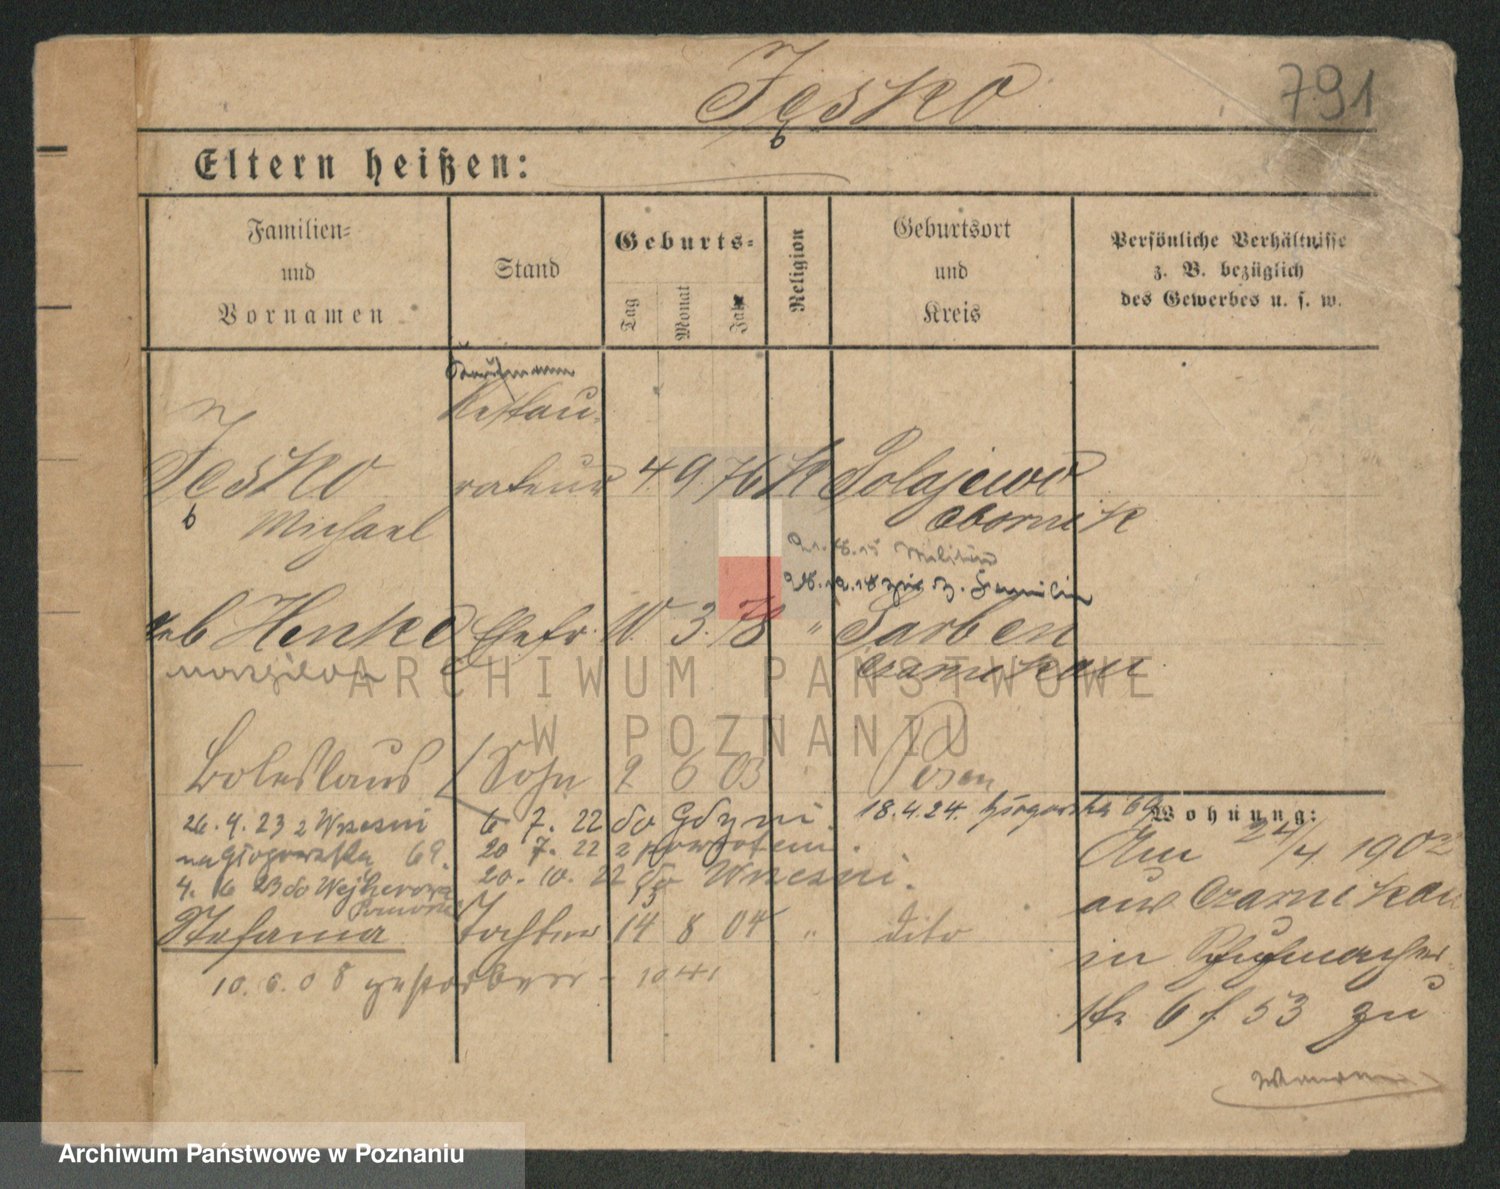 Jesko
b
791
Eltern heißen:
Familien-
und
Vornamen
Stand
Geburts-
Tag
Monat
Jahr
Religion
Geburtsort
und
Kreis
Persönliche Verhältnisse
z. B. bezüglich
des Gewerbes u. s. w.
Kaufmann
Restau-
Jesko rateur 4 9 76 K Polajewo
b Michael Obornik
21.8.15 Militär
28.12.18 z. Familie
geb Henke Ehefr. 10. 3. 78 " Sarben
Czarnikau
Boleslaus Sohn 2 6 03 Posen
26. 4. 23 z Wrzesni 6 7. 22 do Gdyni. 18.4.24. 69
na Głogowska 69. 20 7. 22 z powrotem.
4. 6 23 do Wejherowa 20. 10. 22 do Wrzesni.
Pomorze
Stefania Tochter 14 8 04 " dito
10. 6. 08 gestorben - 1041
Wohnung:
Am 24/4 1902
aus Czarnikau
in Schuhmacher-
str 6 f 53 zu
ARCHIWUM PAŃSTWOWE
W POZNANIU
Archiwum Państwowe w Poznaniu